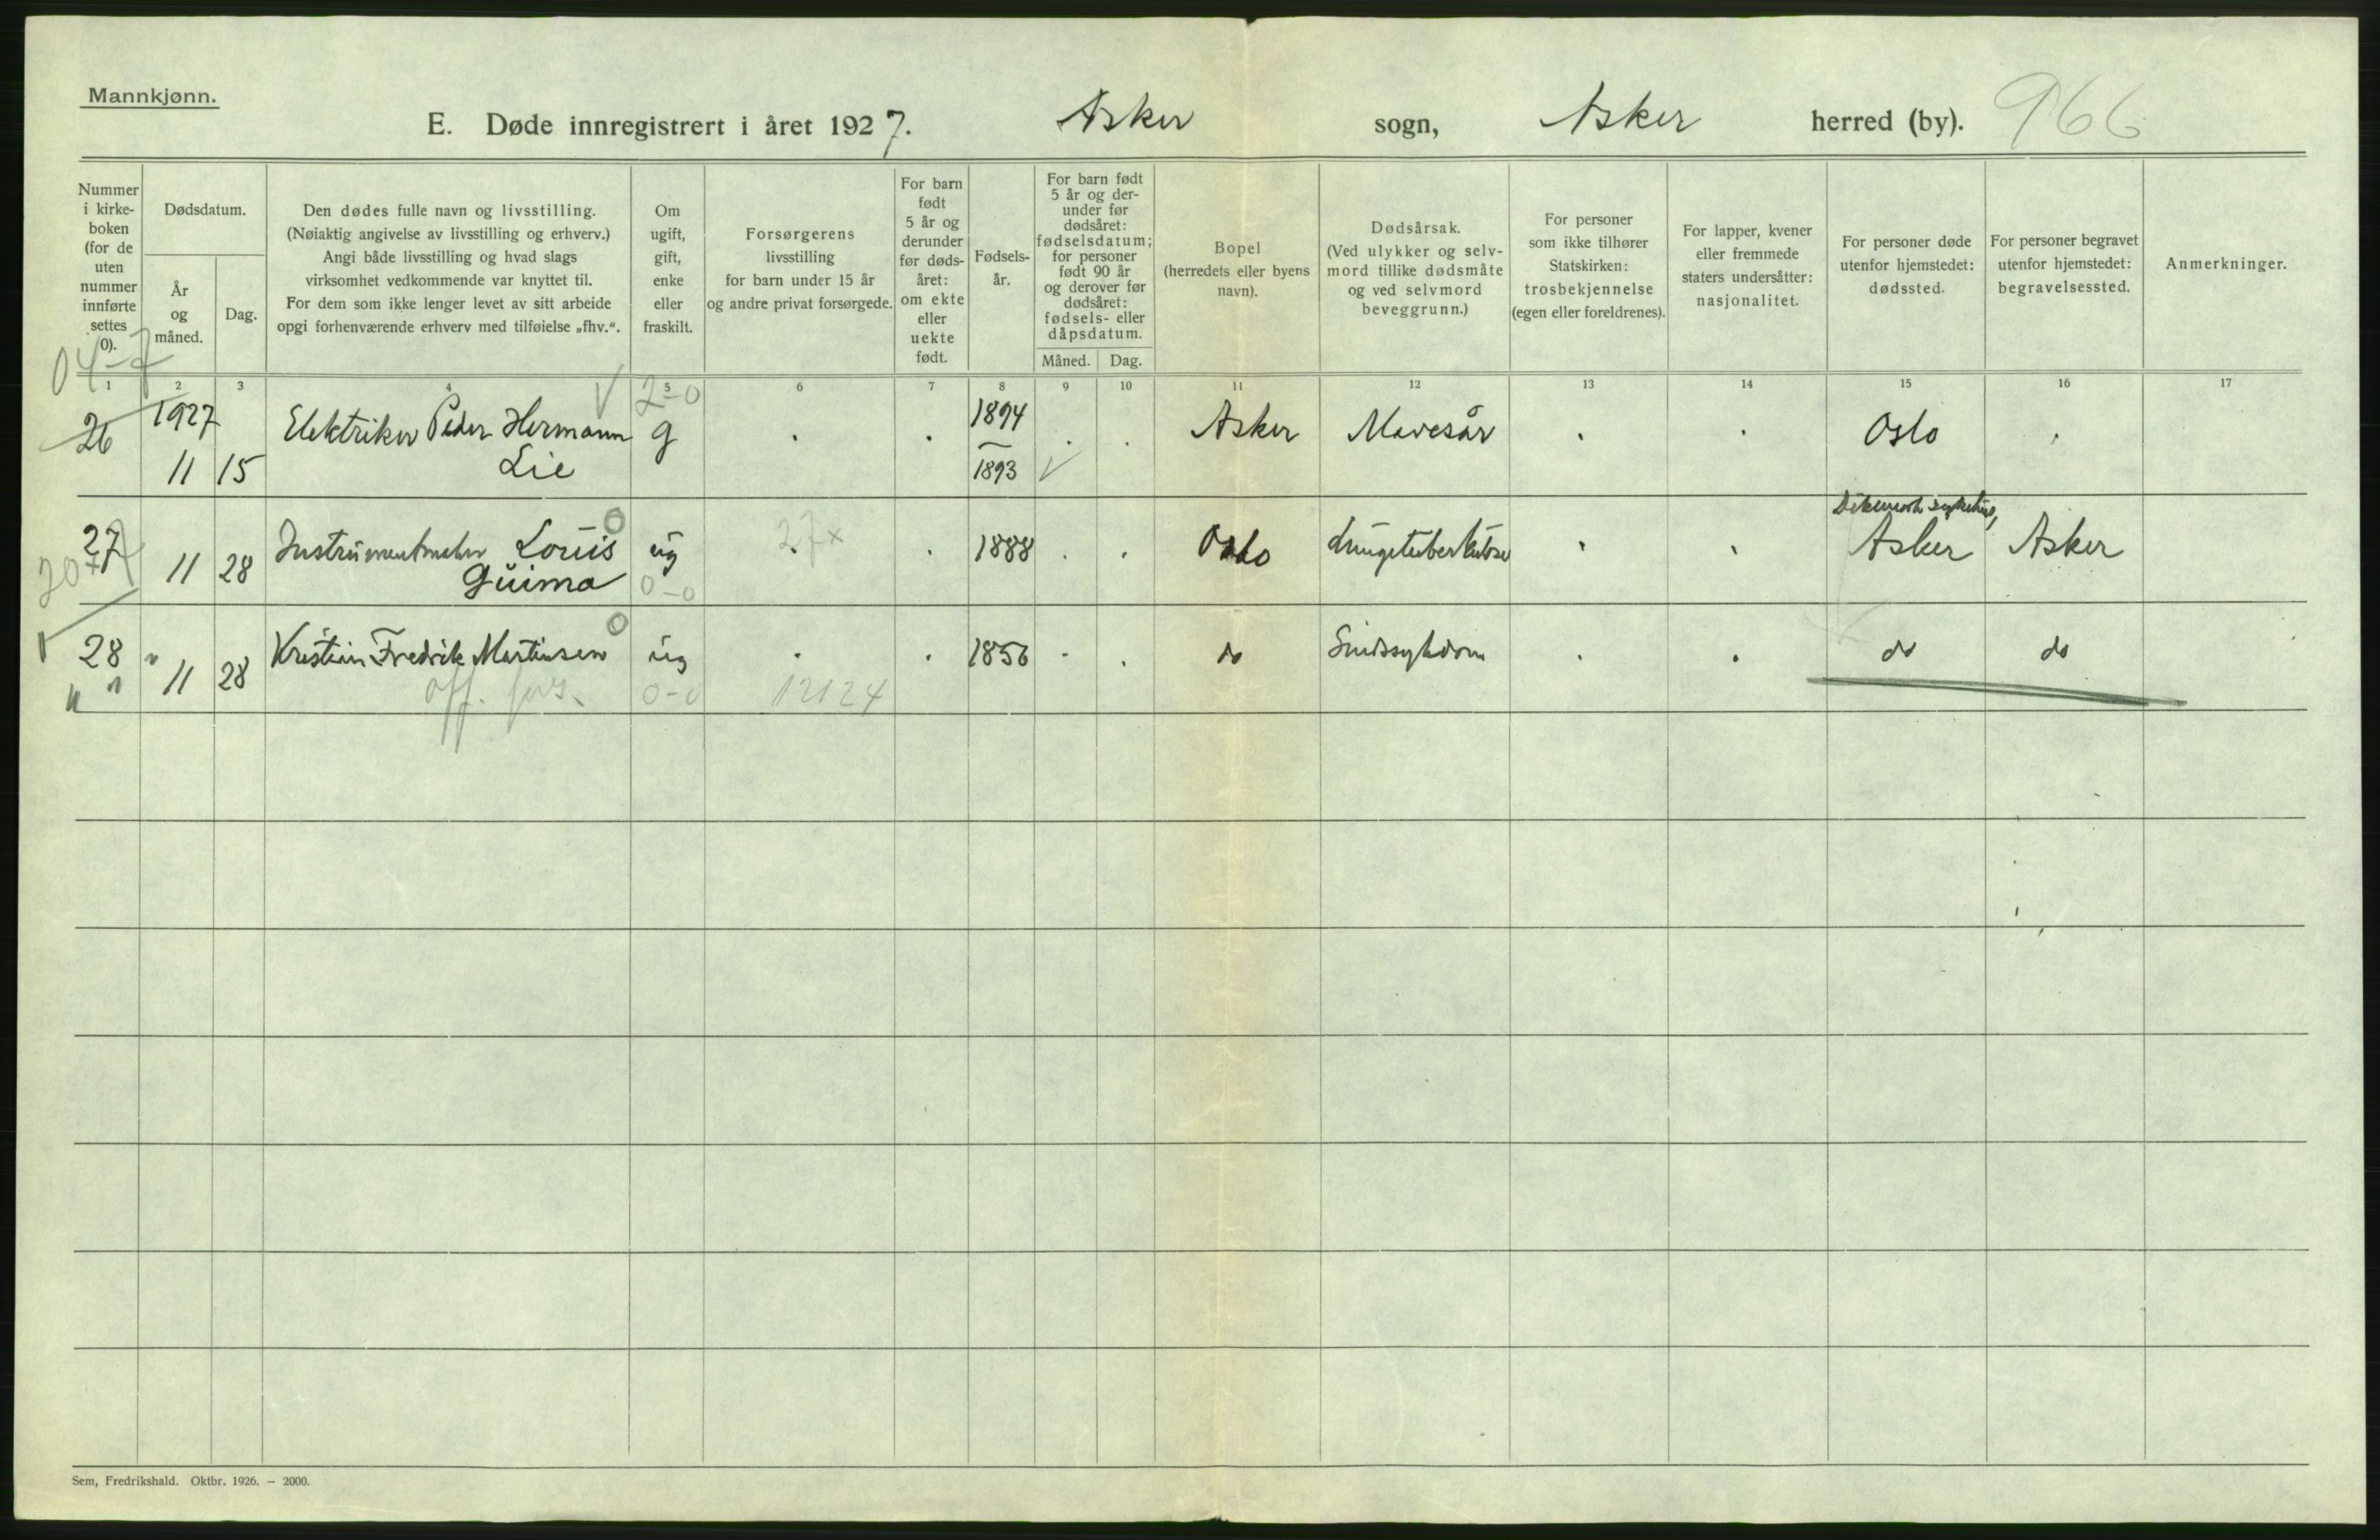 Mannkjønn.
E. Døde innregistrert i året 1927. Asker sogn, Asker herred (by). 966
Nummer i kirke-boken (for de uten nummer innførte settes 0).
Dødsdatum.
År og måned.
Dag.
Den dødes fulle navn og livsstilling.
(Nøiaktig angivelse av livsstilling og erhverv.)
Angi både livsstilling og hvad slags
virksomhet vedkommende var knyttet til.
For dem som ikke lenger levet av sitt arbeide
opgi forhenværende erhverv med tilføielse „fhv.“.
Om ugift, gift, enke eller fraskilt.
Forsørgerens
livsstilling
for barn under 15 år
og andre privat forsørgede.
For barn født 5 år og derunder før døds-året: om ekte eller uekte født.
Fødsels-år.
For barn født 5 år og der-under før dødsåret: fødselsdatum; for personer født 90 år og derover før dødsåret: fødsels- eller dåpsdatum.
Måned. Dag.
Bopel
(herredets eller byens
navn).
Dødsårsak.
(Ved ulykker og selv-
mord tillike dødsmåte
og ved selvmord
beveggrunn.)
For personer
som ikke tilhører
Statskirken:
trosbekjennelse
(egen eller foreldrenes).
For lapper, kvener
eller fremmede
staters undersåtter:
nasjonalitet.
For personer døde
utenfor hjemstedet:
dødssted.
For personer begravet
utenfor hjemstedet:
begravelsessted.
Anmerkninger.
04-7
1 2 3 4 5 6 7 8 9 10 11 12 13 14 15 16 17
2-0
26 1927 11 15 Elektriker Peder Hermann g . . 1894 . . Asker Mavesår . . Oslo .
Lie 1893
Dikemark sykehus,
27 11 28 Instrumentmaker Louis ug . . 1888 . . Oslo Lungetuberkulose . . Asker Asker
Guima 0-0
27x
28 " 11 28 Kristian Fredrik Martinsen ug . . 1856 . . do Sindssykdom . . do do
off. fors. 0-0 12124
Sem, Fredrikshald. Oktbr. 1926. — 2000.